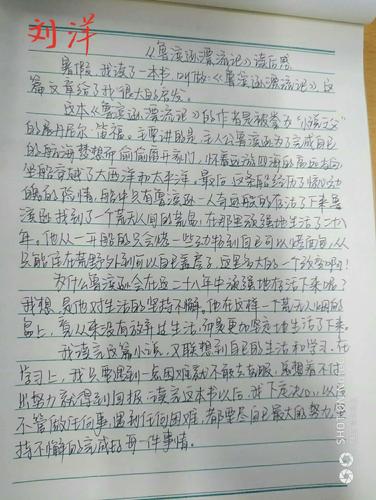 刘洋
《鲁滨逊漂流记》读后感
暑假，我读了一本书，叫做《鲁滨逊漂流记》，这
篇文章给了我很大的启发。
这本《鲁滨逊漂流记》的作者是被拳为"小说之父"
的展丹尼尔·笛福。主要讲的是：主人公鲁滨逊为了完成自己
的航海梦想而偷偷离开家门，怀着远游四海的高远志向，
坐船穿越了大西洋和太平洋。最后，这条船经历了惊心动
魄的险情，船中只有鲁滨逊一人奇迹般的存活了下来。鲁
滨逊找到了一个荒无人间的荒岛，在那里顽强地生活了二十八
年。他从一开始的只会烤一些动物到自己可以烤面包，从
只能住在荒野外到可以自己盖房子，这是多大的一个改变啊！
为什么鲁滨逊会在这二十八年中顽强地存活下来呢？
我想，是他对生活的坚持不懈。他在这样一个荒无人烟的
岛上，看从来没有放弃过生活，而是更加坚定地生活了下来。
我读完这篇小说，又联想到自己的生活和学习。在
学习上，我只要遇到一点困难就不敢去克服，总想着不付
出努力就得到回报。读完这本书以后，我下定决心，以后
不管做任何事，遇到任何困难，都要尽自己最大的努力，坚
持不懈的完成好每一件事情。